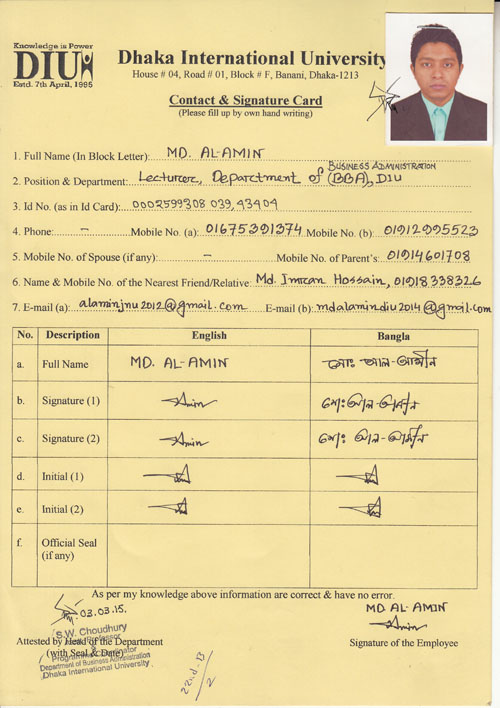 Knowledge is Power
DIU
Estd. 7th April, 1995
Dhaka International University
House # 04, Road # 01, Block # F, Banani, Dhaka-1213
Contact & Signature Card
(Please fill up by own hand writing)
1. Full Name (In Block Letter): MD. AL-AMIN
2. Position & Department: Lecturer, Department of BUSINESS ADMINISTRATION (BBA), DIU
3. Id No. (as in Id Card): 0002599308 039,43404
4. Phone: - Mobile No. (a): 01675391374 Mobile No. (b): 01912995523
5. Mobile No. of Spouse (if any): - Mobile No. of Parent's: 01914601708
6. Name & Mobile No. of the Nearest Friend/Relative: Md. Imran Hossain, 01918338326
7. E-mail (a): alaminjnu2012@gmail.com E-mail (b) mdalamindiu2014@gmail.com
No. Description English Bangla
a. Full Name MD. AL-AMIN মোঃ আল-আমীন
b. Signature (1) Amin মোঃ আল-আমীন
c. Signature (2) Amin মোঃ আল-আমীন
d. Initial (1)
e. Initial (2)
f. Official Seal
(if any)
As per my knowledge above information are correct & have no error.
03.03.15. MD. AL-AMIN
S.W. Choudhury Amin
Attested by Head of the Department Signature of the Employee
(with Seal & Date)
Department of Business Administration
Dhaka International University.